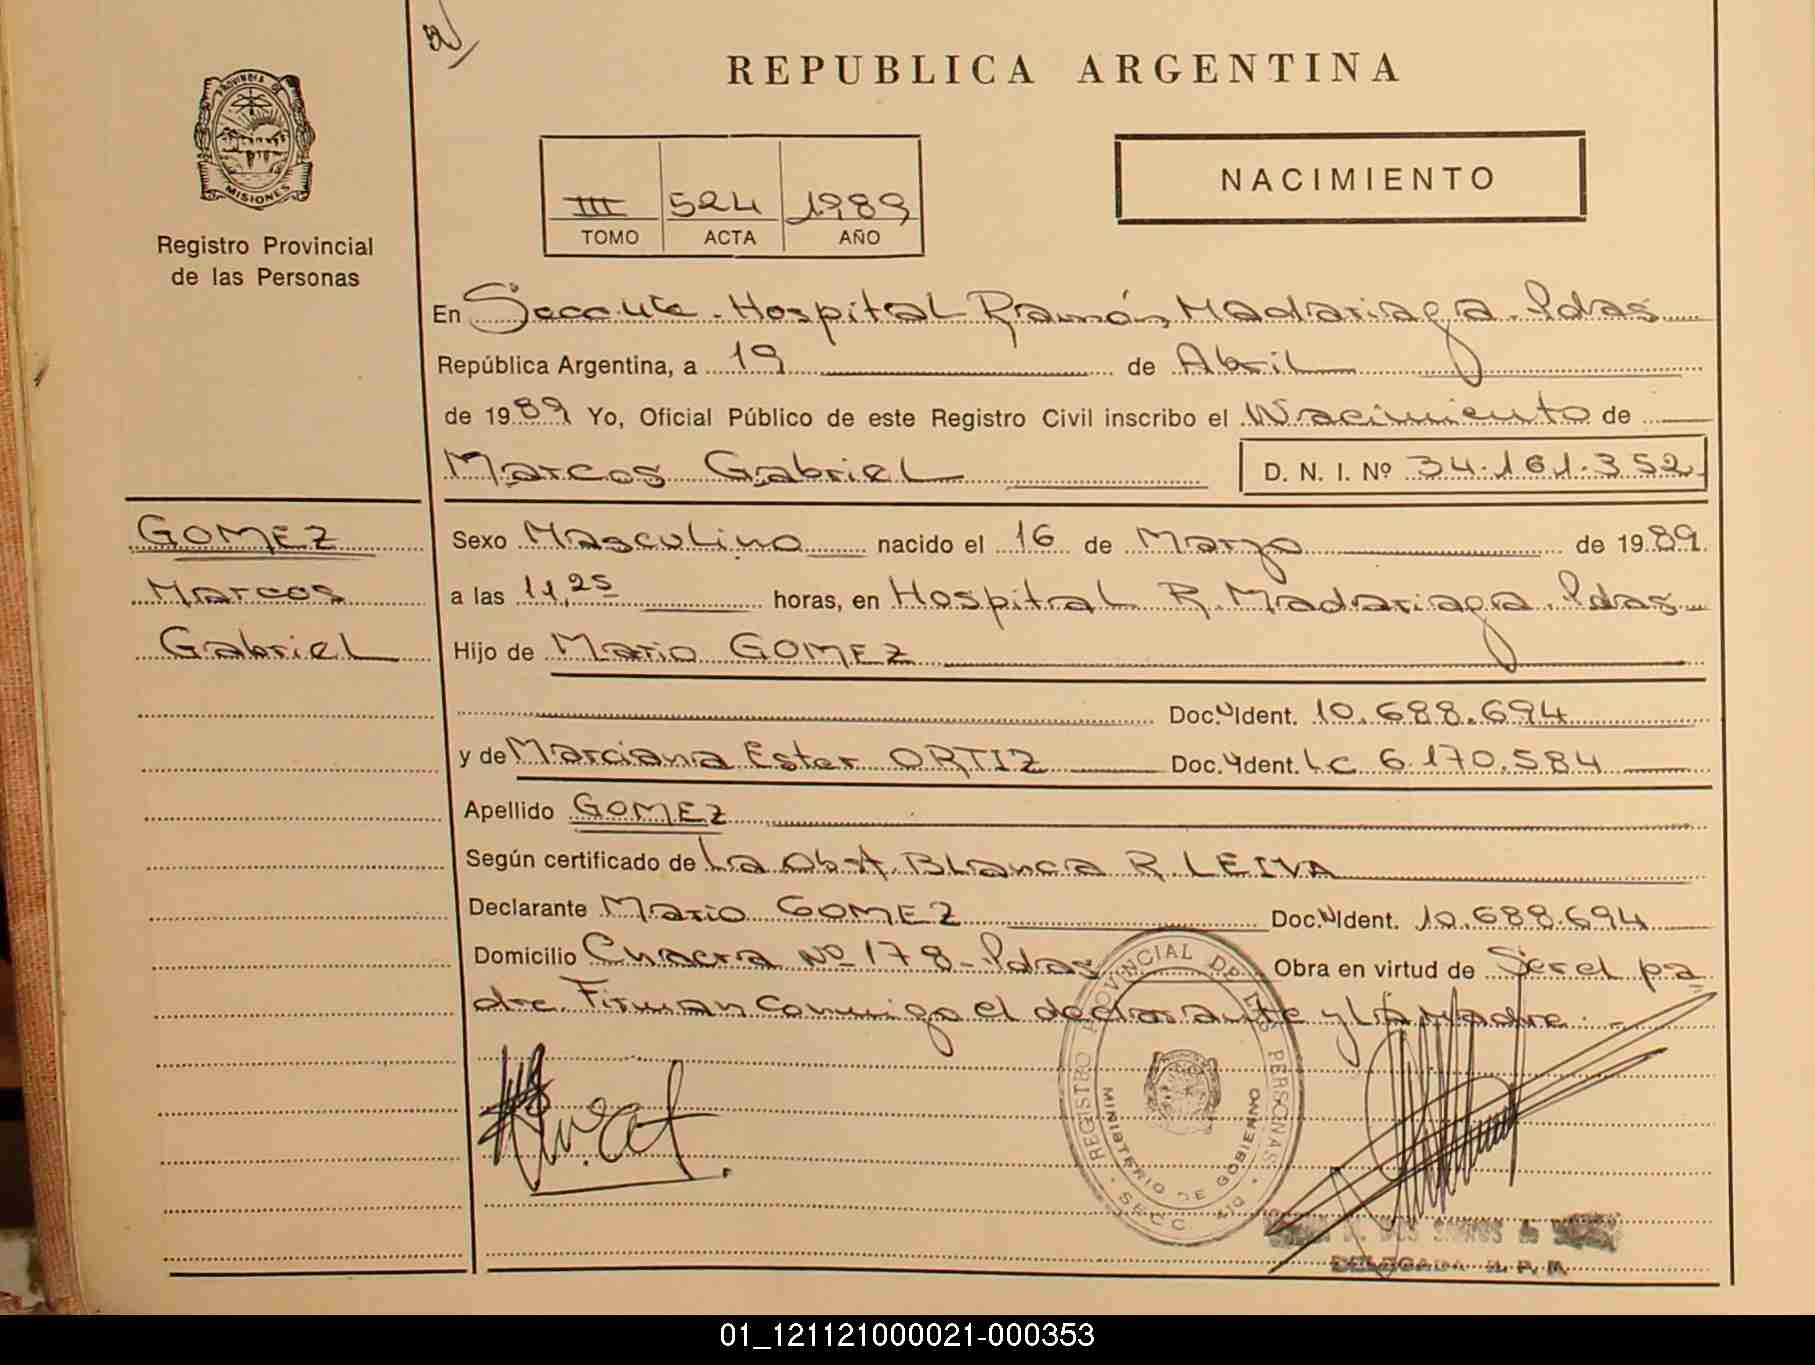 REPUBLICA ARGENTINA
PROVINCIA DE
MISIONES
Registro Provincial
de las Personas
III 524 1989
TOMO ACTA AÑO
NACIMIENTO
En Hospital Ramón Madariaga. Pdas
República Argentina, a 19 de Abril
de 1989 Yo, Oficial Público de este Registro Civil inscribo el Nacimiento de
Marcos Gabriel D. N. I. Nº 34.161.352
GOMEZ
Marcos
Gabriel
Sexo Masculino nacido el 16 de Marzo de 1989.
a las 11,25 horas, en Hospital R. Madariaga. Pdas
Hijo de Mario GOMEZ
Doc. Ident. 10.688.694
y de Marciana Ester ORTIZ Doc. Ident. LC 6.170.584
Apellido GOMEZ
Según certificado de La Obst. Blanca R. LEIVA
Declarante Mario GOMEZ Doc. Ident. 10.688.694
Domicilio Chacra Nº 178 - Pdas Obra en virtud de Ser el pa
dre. Firman conmigo el declarante y La Madre.
REGISTRO PROVINCIAL DE LAS PERSONAS
MINISTERIO DE GOBIERNO
DOS SANTOS de
DELEGADA R. P. P.
01_121121000021-000353